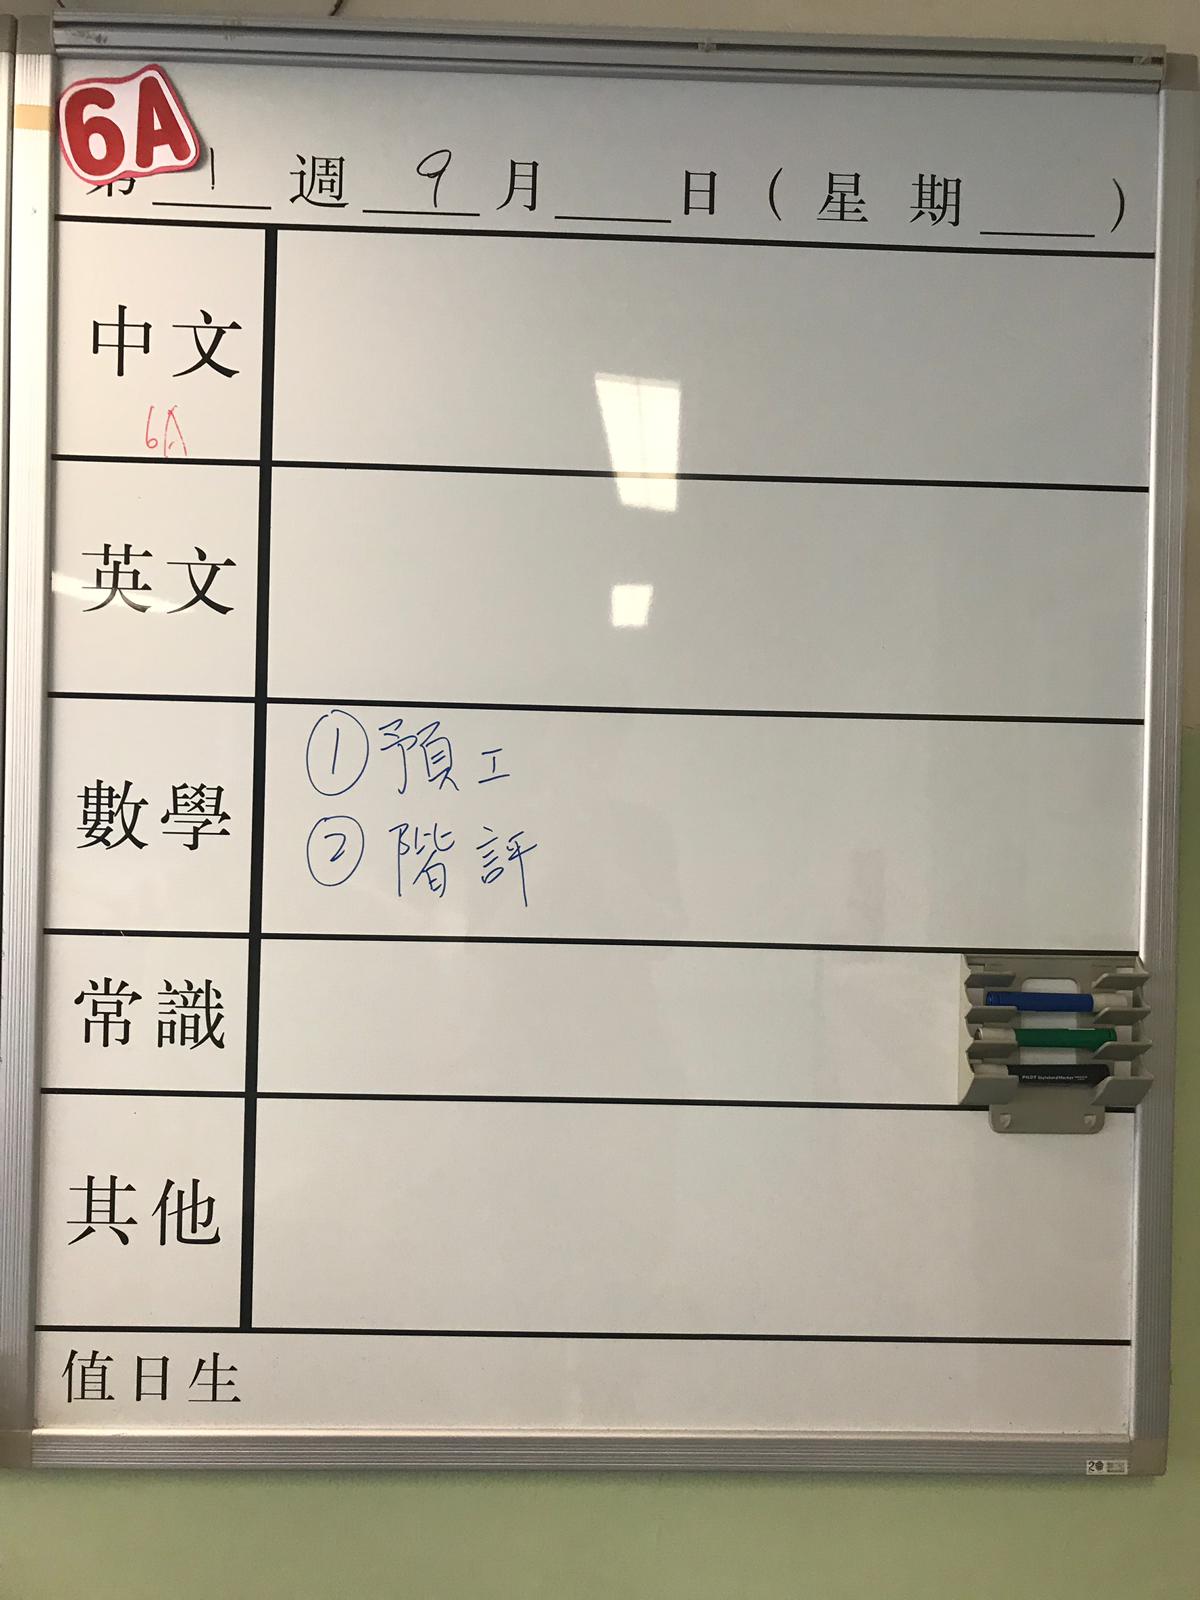 6A
第 1 週 9 月 日 ( 星 期 )
中文
6A
英文
數學
① 預工
② 階評
常識
其他
值日生
PILOT